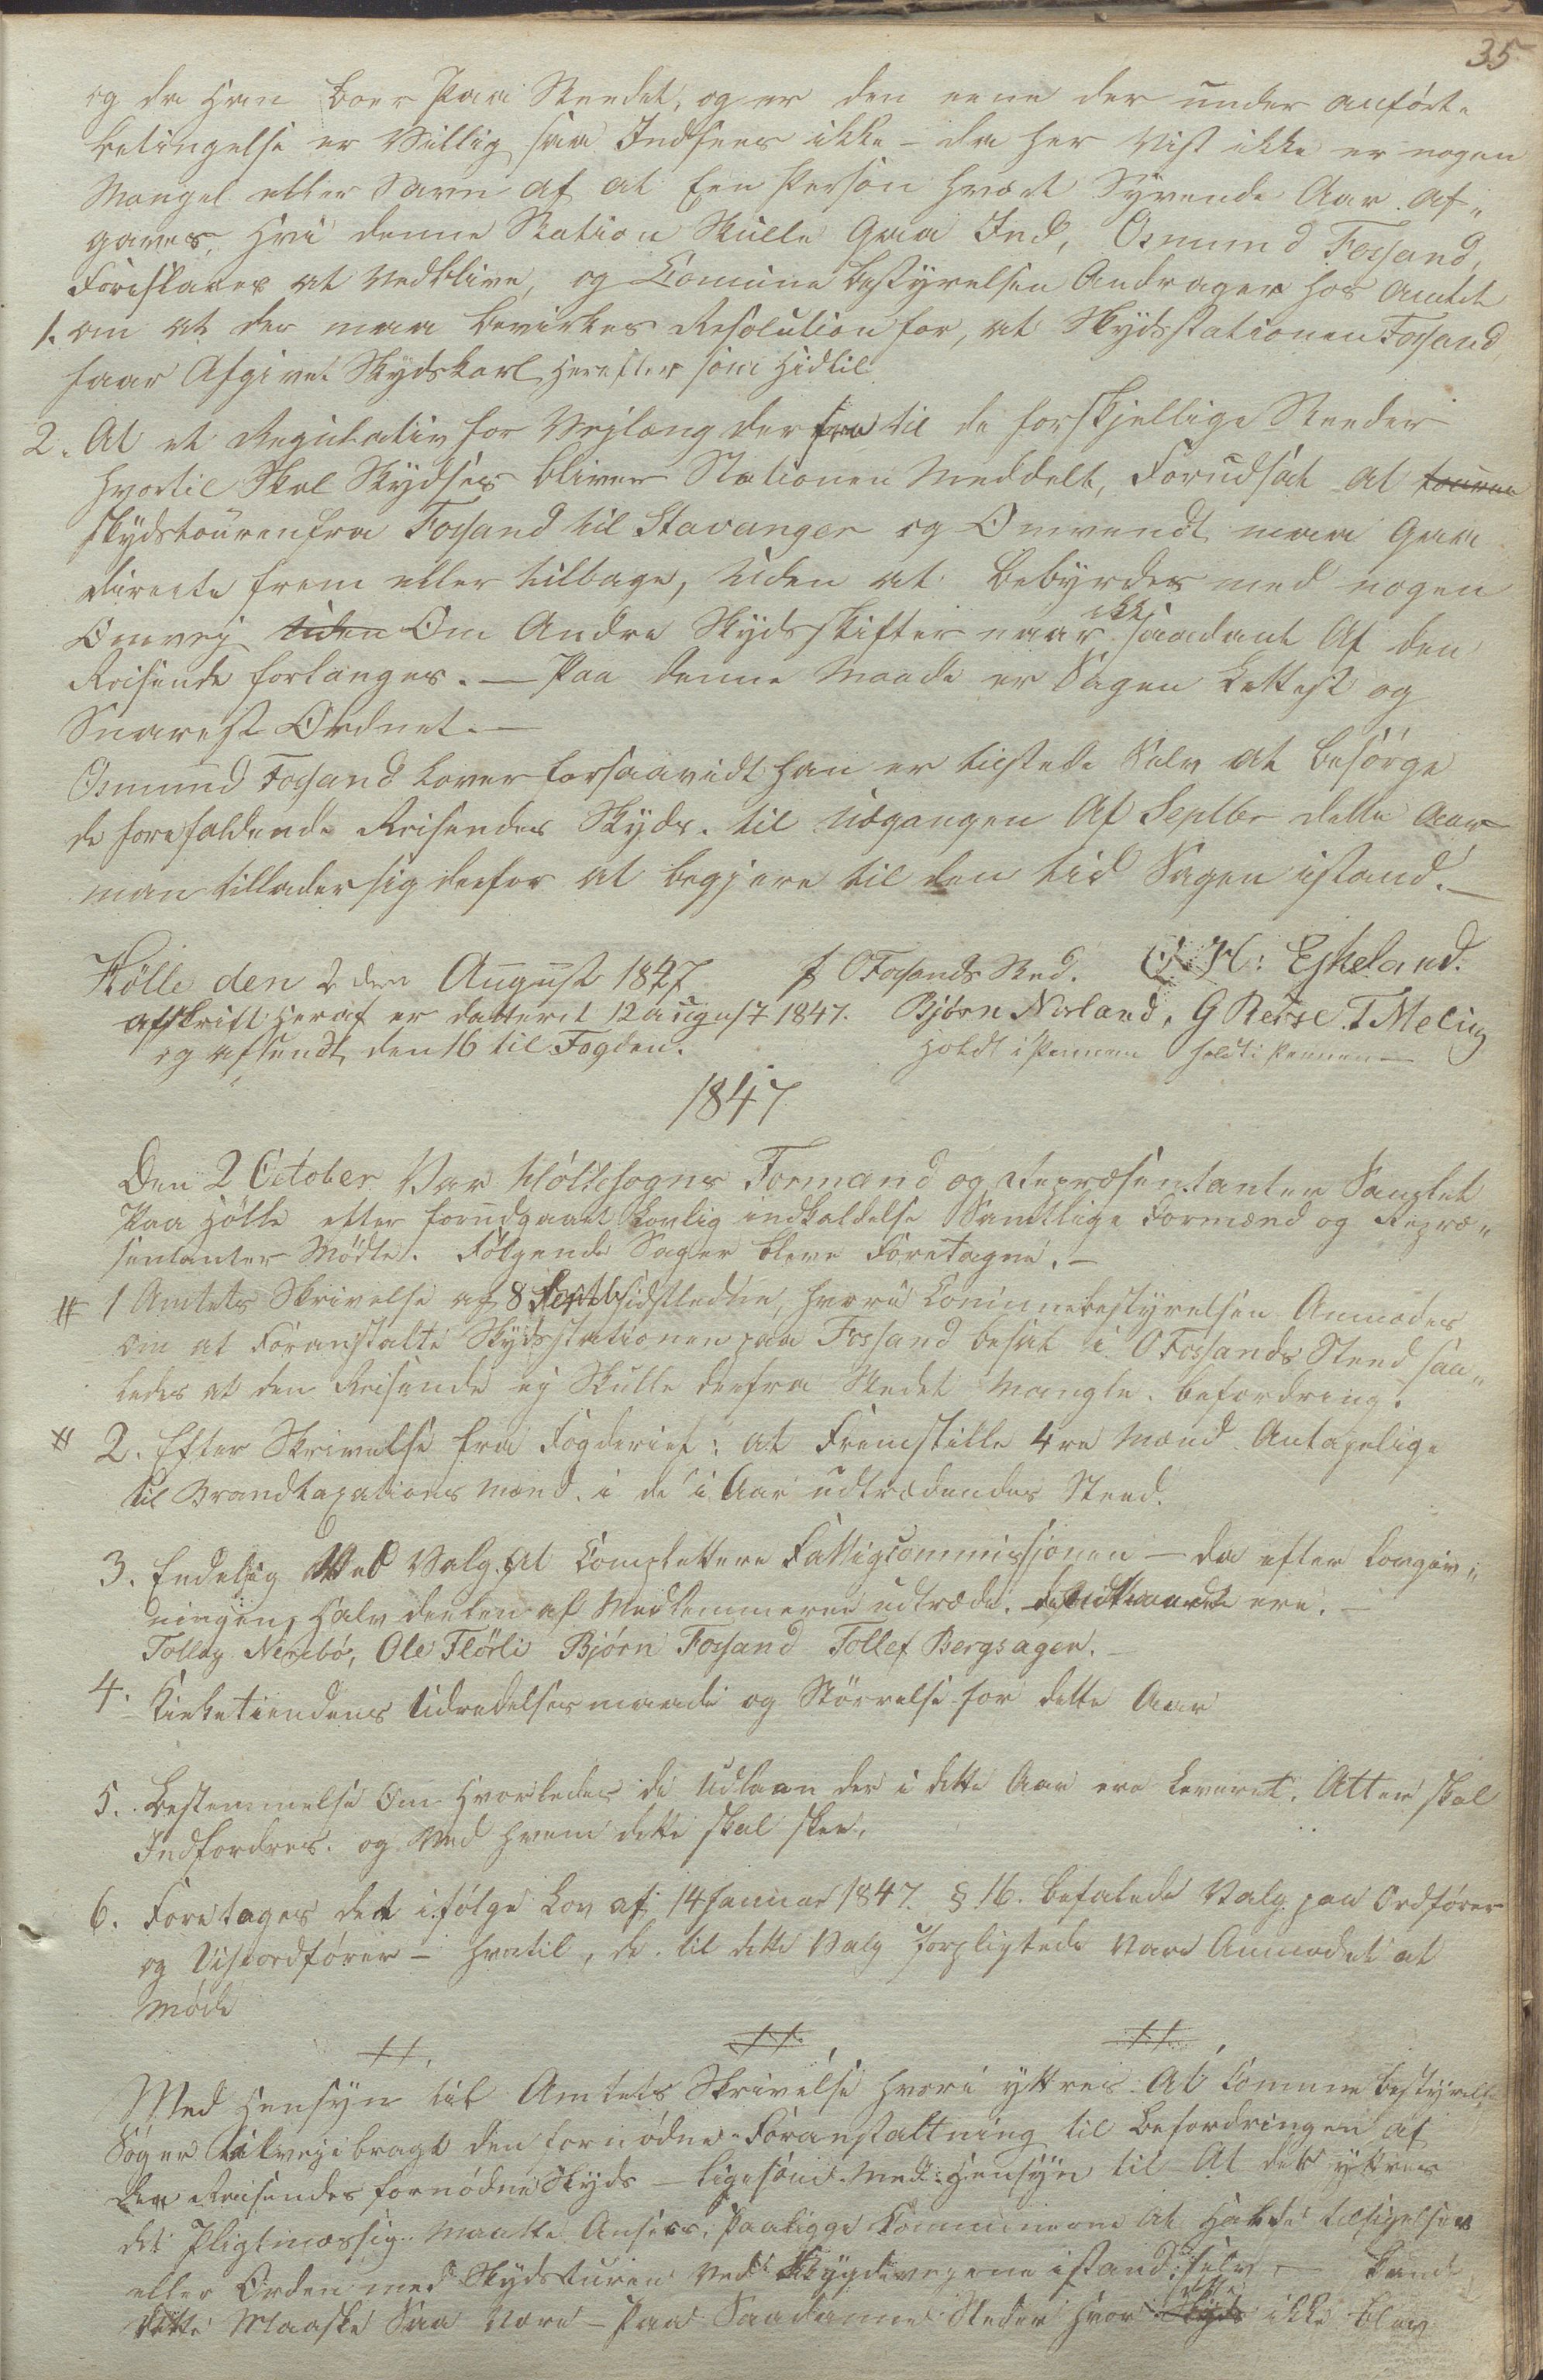 35
og da Han boer Paa Stædet, og er den eene der under anførte
betingelse er Villig saa Indsees ikke – da her Vist ikke er nogen
Mangel eller Savn af at Een Person hvært Syvende Aar af„
gaves, Hvi denne Station Skulle Gaa Ind, Osmund Fossand,
Foreslaaes at Vedblive, og Comune bestyrelsen Andrager hos Amtet
1. om at der maa bevirkes Resolution for, at Skydsstationen Fossand
faar Afgivet Skydskarl Herefter som Hidtil
2. At et Regulativ for Vejlæng derfra til de forskjellige Steeder
hvortil Skal Skydses bliver Stationen Meddelt, Forudsat at touren
skydstouren fra Fossand til Stavanger og Omvendt maa Gaa
directe frem eller tilbage, Uden at bebyrdes med nogen
Omvej Uden Om Andre Skydsskifter naar ikke saadant Af den
Reisende forlanges. — Paa denne Maade er Sagen Lettest og
Snarest Ordnet. —
Osmund Fossand Lover forsaavidt han er tilstede Selv at besørge
de forefaldende Reisendes Skyds. til Udgangen Af Septbr dette Aar
man tillader sig derfor at begjere til den tid Sagen istand. —
Hølle den 2den August 1847 f O Fossands Sted. O. H: Eskeland.
afskrift Heraf er datteret 12 august 1847. Bjørn Norland, G Reise. T Meling
og afsendt den 16 til Fogden. Holdt i Pennen holdt i Pennen —
1847
Den 2 October Var Høllesogns Formand og Repræsentanter Samlet
Paa Hølle efter forudgaaet Lovlig indkaldelse Samtlige Formænd og Repræ„
sentanter Mødte. Følgende Sager bleve Foretagne. –
# 1 Amtets Skrivelse af 8 Septb sidstledne, hvori Comunebestyrelsen Anmodes
om at Foranstalte Skydsstationen paa Fossand besat i O Fossands Steed saa„
ledes at den Reisende ej Skulle derfra Stedet Mangle befordring.
# 2. Efter Skrivelse fra Fogderiet: at Fremstille 4re Mænd Antagelige
til Brandtaxations mænd i de i Aar udtrædendes Steed.
3. Endelig Ved Valg At Complettere Fattigcommissjonen – da efter Lovgiv„
ningen Halvdeelen af Medlemmerne udtræde. de ere. –
Tollag Nerebø, Ole Flörli Bjórn Fossand Tollef Bergsagen. –
4. Kirketiendens Udredelsesmaade og Størrelse for dette Aar
5. Bestemmelse Om Hvorledes de Udlaan der i dette Aar ere Leveret. Atter skal
Indfordres. og Ved hvem dette skal skee.
6. Foretages det ifølge Lov af 14 Januar 1847. § 16. befalede Valg paa Ordfører
og Viseordfører – hvortil, de til dette Valg forpligtede Vare Anmodet at
Møde
Med Hensyn til Amtets Skrivelse hvori yttres At Comune bestyrelse
Søger tilvejebragt den fornødne Foranstaltning til Befordringen af
den Reisendes fornødne Skyds – ligesom Med Hensyn til At det yttres
det Pligtmæssig Maatte Ansees, Paaligge Communerne at Holde tilsigelsen
eller Orden med Skydsturen Ved Bygdevejene istand selv – kunde
dette Maaske Saa være – Paa Saadanne Steder hvor Skyds ikke blev